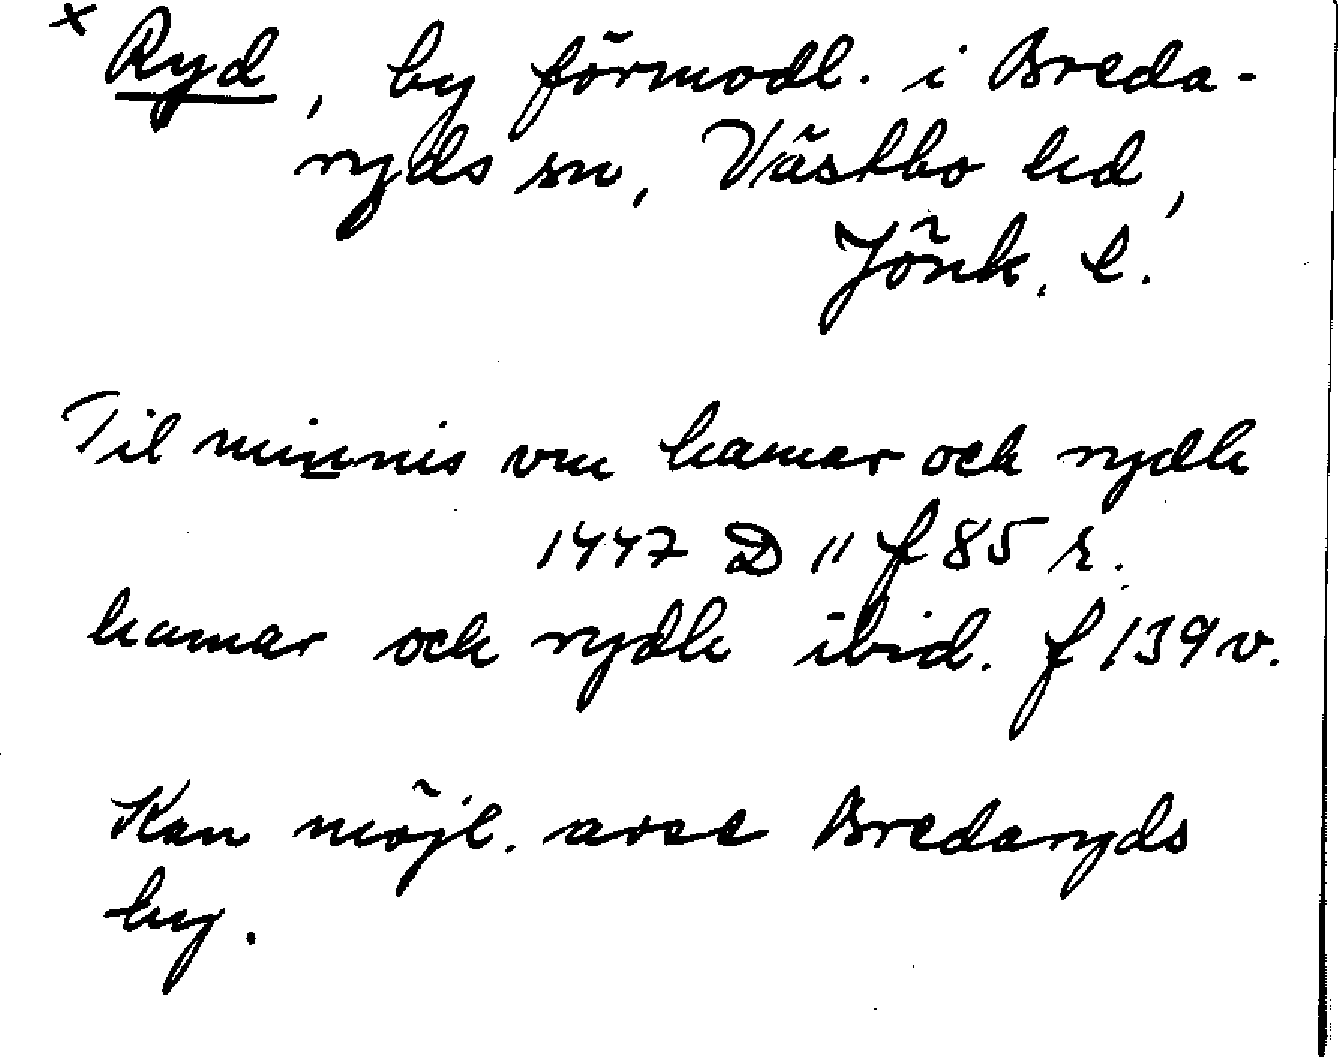 × Ryd, by förmodl. i Breda-
ryds sn, Västbo hd,
Jönk. l.
Til minnis vm hamar och rydh
1447 D 11 f 85 r.
hamar och rydh ibid. f 139 v.
Kan möjl. avse Bredaryds
by.